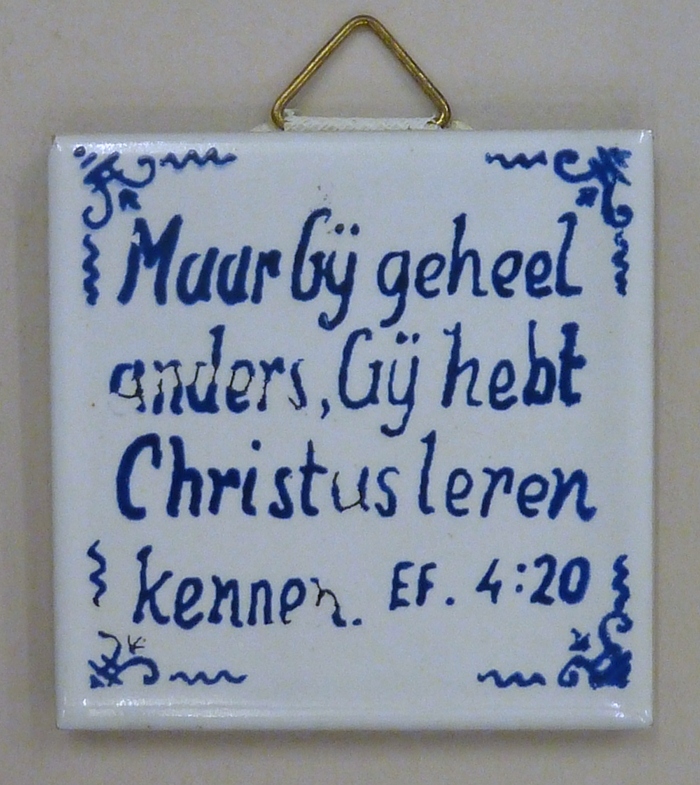 Maar Gÿ geheel
anders, Gÿ hebt
Christus leren
kennen. EF. 4:20